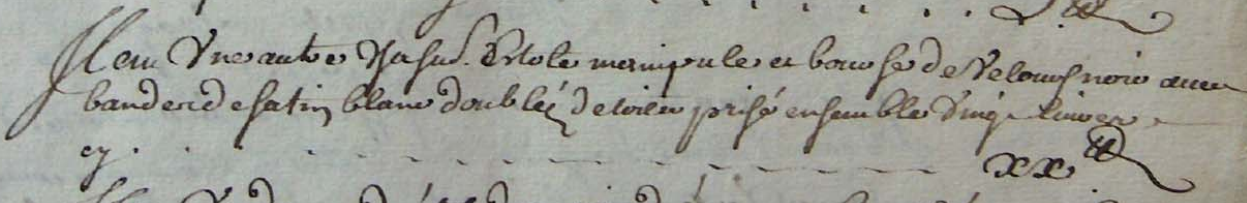 Item Une autre Chasu. Estole manipule et bourse de Velours noir avec
bandes de satin blanc doublé de toile prisé ensemble Vingt livres
cy . . . . . . . . . . xx ₶